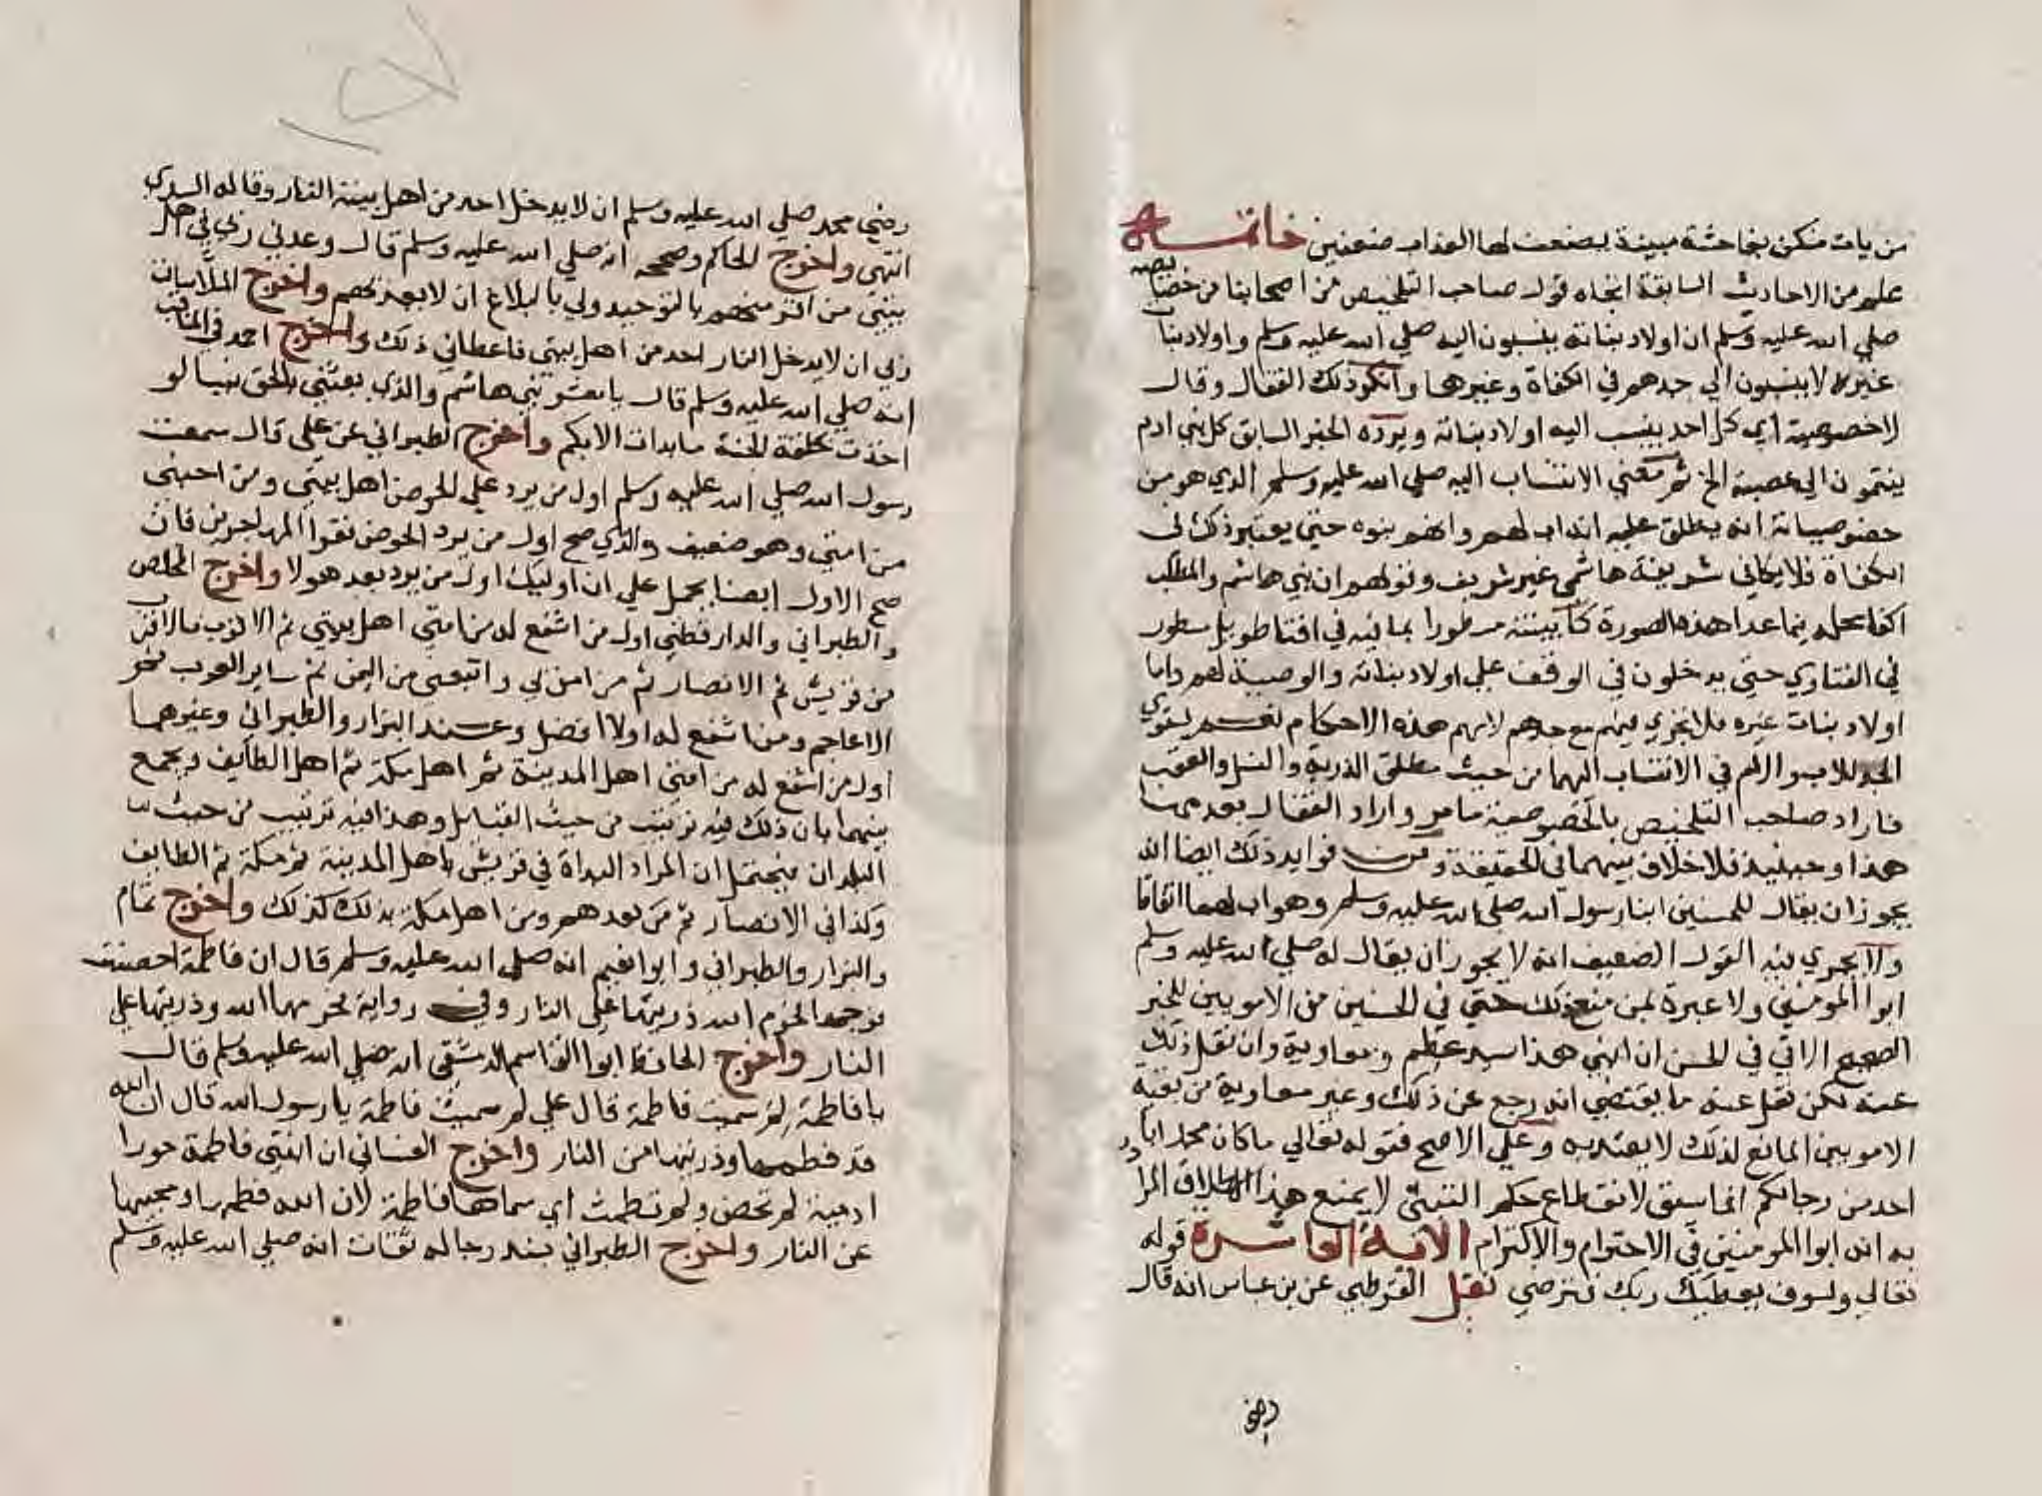 من يات منكن بفاحشة مبينة يضعف لها العذاب ضعفين خاتمة
علم من الاحاديث السابقة اتجاه قول صاحب التلخيص من اصحابنا من خصايصه
صلي الله عليه وسلم ان اولاد بناته ينسبون اليه صلي الله عليه وسلم واولاد بنات
غيره لا ينسبون الي جدهم في الكفاة وغيرها وانكر ذلك القفال وقال
لا خصوصية اي كل احد ينسب اليه اولاد بناته ويرده الخبر السابق كل بني ادم
ينتمون الي عصبة الخ ثم معني الانتساب اليه صلي الله عليه وسلم الذي هو من
خصوصياته انه يطلق عليه انه اب لهم وانهم بنوه حتي يعتبر ذلك في
الكفاة فلا يكافي شريفة هاشمي غير شريف وقولهم ان بني هاشم والمطلب
اكفا محله فيما عدا هذه الصورة كما بينته بما فيه في افتا طويل مسطور
في الفتاوي حتي يدخلون في الوقف علي اولاد بناته والوصية لهم واما
اولاد بنات غيره فلا تجري فيهم مع جدهم لامهم هذه الاحكام نعم يستوي
الجد للاب والام في الانتساب اليهما من حيث مطلق الذرية والنسل والعقب
فاراد صاحب التلخيص بالخصوصية ما مر واراد القفال بعدمها
هذا وحينيذ فلا خلاف بينهما في الحقيقة ومن فوايد ذلك ايضا انه
يجوز ان يقال للحسنين ابنا رسول الله صلي الله عليه وسلم وهو اب لهما اتفاقا
ولا يجري فيه القول الضعيف انه لا يجوز ان يقال له صلي الله عليه وسلم
ابوا المومنين ولا عبرة لمن منع ذلك حتي في الحسنين من الامويين للخبر
الصحيح الاتي في الحسن ان ابني هذا سيد عظيم ومعاوية وان نقل ذلك
عنه لكن نقل عنه ما يقتضي انه رجع عن ذلك وغير معاوية من بقية
الامويين المانع لذلك لا يعتد به وعلي الاصح فقوله تعالي ما كان محمد ابا
احد من رجالكم انما سيق لانقطاع حكم التبني لا يمنع هذا الاطلاق المراد
به انه ابوا المومنين في الاحترام والاكرام الاية العاشرة قوله
تعالي ولسوف يعطيك ربك فترضي نقل القرطبي عن بن عباس انه قال
رضي
رضي محمد صلي الله عليه وسلم ان لا يدخل احد من اهل بيته النار وقاله السدي
انتهي واخرج الحاكم وصححه انه صلي الله عليه وسلم قال وعدني ربي في اهل
بيتي من اقر منهم بالتوحيد ولي بالبلاغ ان لا يعذبهم واخرج الملا سالت
ربي ان لا يدخل النار احد من اهل بيتي فاعطاني ذلك واخرج احمد في المناقب
انه صلي الله عليه وسلم قال يا معشر بني هاشم والذي بعثني بالحق نبيا لو
اخذت بحلقة الجنة ما بدات الا بكم واخرج الطبراني عن علي قال سمعت
رسول الله صلي الله عليه وسلم اول من يرد علي الحوض اهل بيتي ومن احبني
من امتي وهو ضعيف والذي صح اول من يرد الحوض فقرا المهاجرين فان
صح الاول ايضا يحمل علي ان اوليك اول من يرد بعد هولا واخرج المخلص
والطبراني والدارقطني اول من اشفع له من امتي اهل بيتي ثم الاقرب فالاقرب
من قريش ثم الانصار ثم من امن بي واتبعني من اليمن ثم ساير العرب ثم
الاعاجم ومن اشفع له اولا افضل وعند البزار والطبراني وغيرهما
اول من اشفع له من امتي اهل المدينة ثم اهل مكة ثم اهل الطايف ويجمع
بينهما بان ذلك فيه ترتيب من حيث القبايل وهذا فيه ترتيب من حيث
البلدان فيحتمل ان المراد البداة في قريش باهل المدينة ثم مكة ثم الطايف
وكذا في الانصار ثم من بعدهم ومن اهل مكة بذلك كذلك واخرج تمام
والبزار والطبراني وابوا نعيم انه صلي الله عليه وسلم قال ان فاطمة احصنت
فرجها فحرم الله ذريتها علي النار وفي رواية فحرمها الله وذريتها علي
النار واخرج الحافظ ابوا القاسم الدمشقي انه صلي الله عليه وسلم قال
يا فاطمة لم سميت فاطمة قال علي لم سميت فاطمة يا رسول الله قال ان الله
قد فطمها وذريتها من النار واخرج الغساني ان ابنتي فاطمة حورا
ادمية لم تحض ولم تطمث اي سماها فاطمة لان الله فطمها ومحبيها
عن النار واخرج الطبراني بسند رجاله ثقات انه صلي الله عليه وسلم